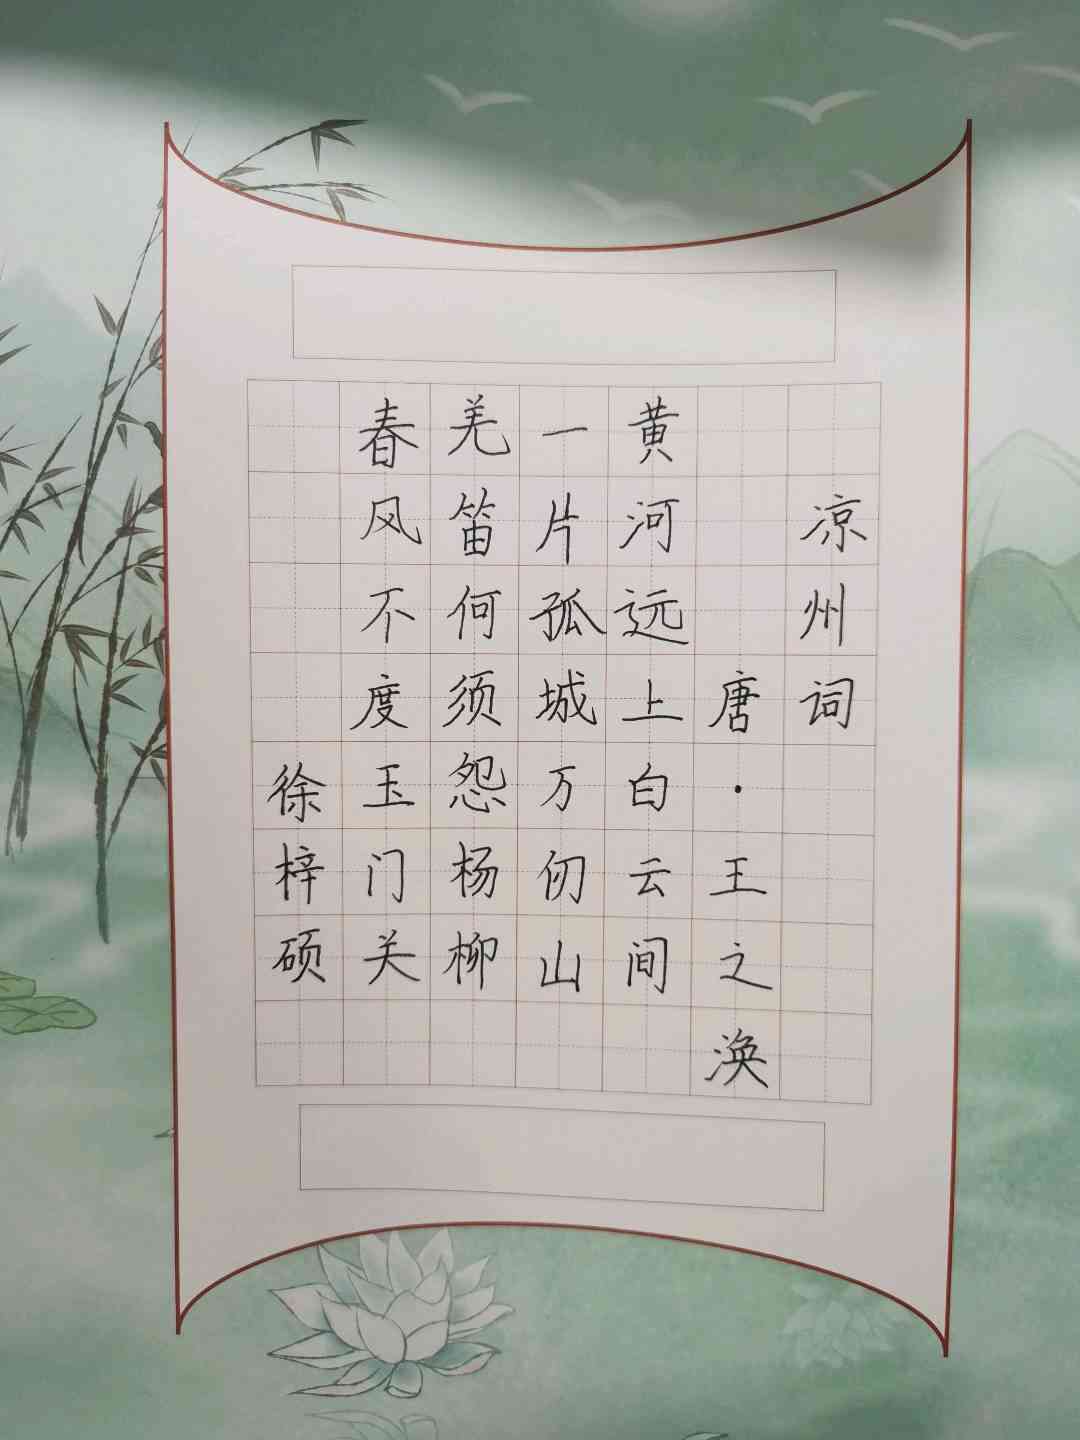 凉州词
唐·王之涣
黄河远上白云间
一片孤城万仞山
羌笛何须怨杨柳
春风不度玉门关
徐梓硕